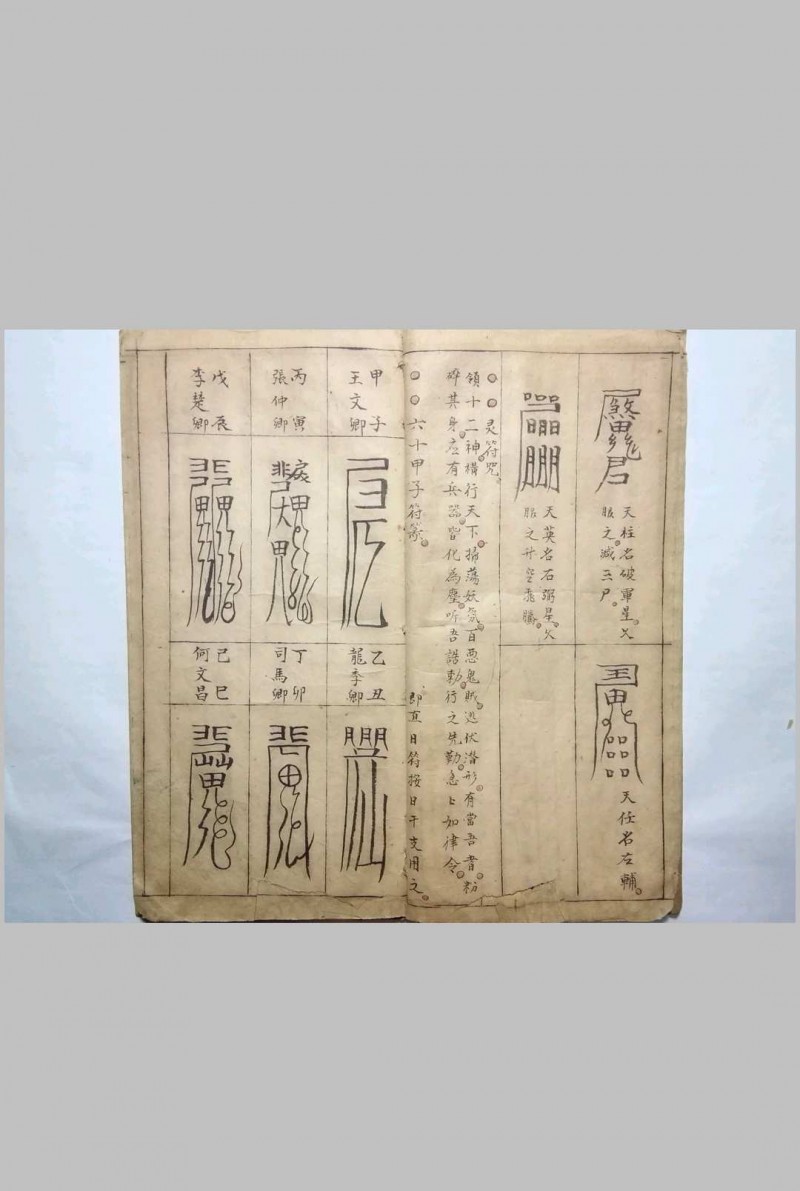 天柱名破軍星。欠
服之滅三尸。
天任名左輔。
天英名右弼星。欠
服之升空飛騰。
灵符咒。
領十二神。橫行天下。掃荡妖氛。百恶鬼賊。迯伏潜形。有當吾者。粉
碎其身。应有兵器。皆化為塵。听吾誥勅。行之先勤。急上如律令。
六十甲子符篆。即直日符按日干支用之。
甲子
王文卿
乙丑
龍季卿
丙寅
張仲卿
丁卯
司馬卿
戊辰
李楚卿
己巳
何文昌